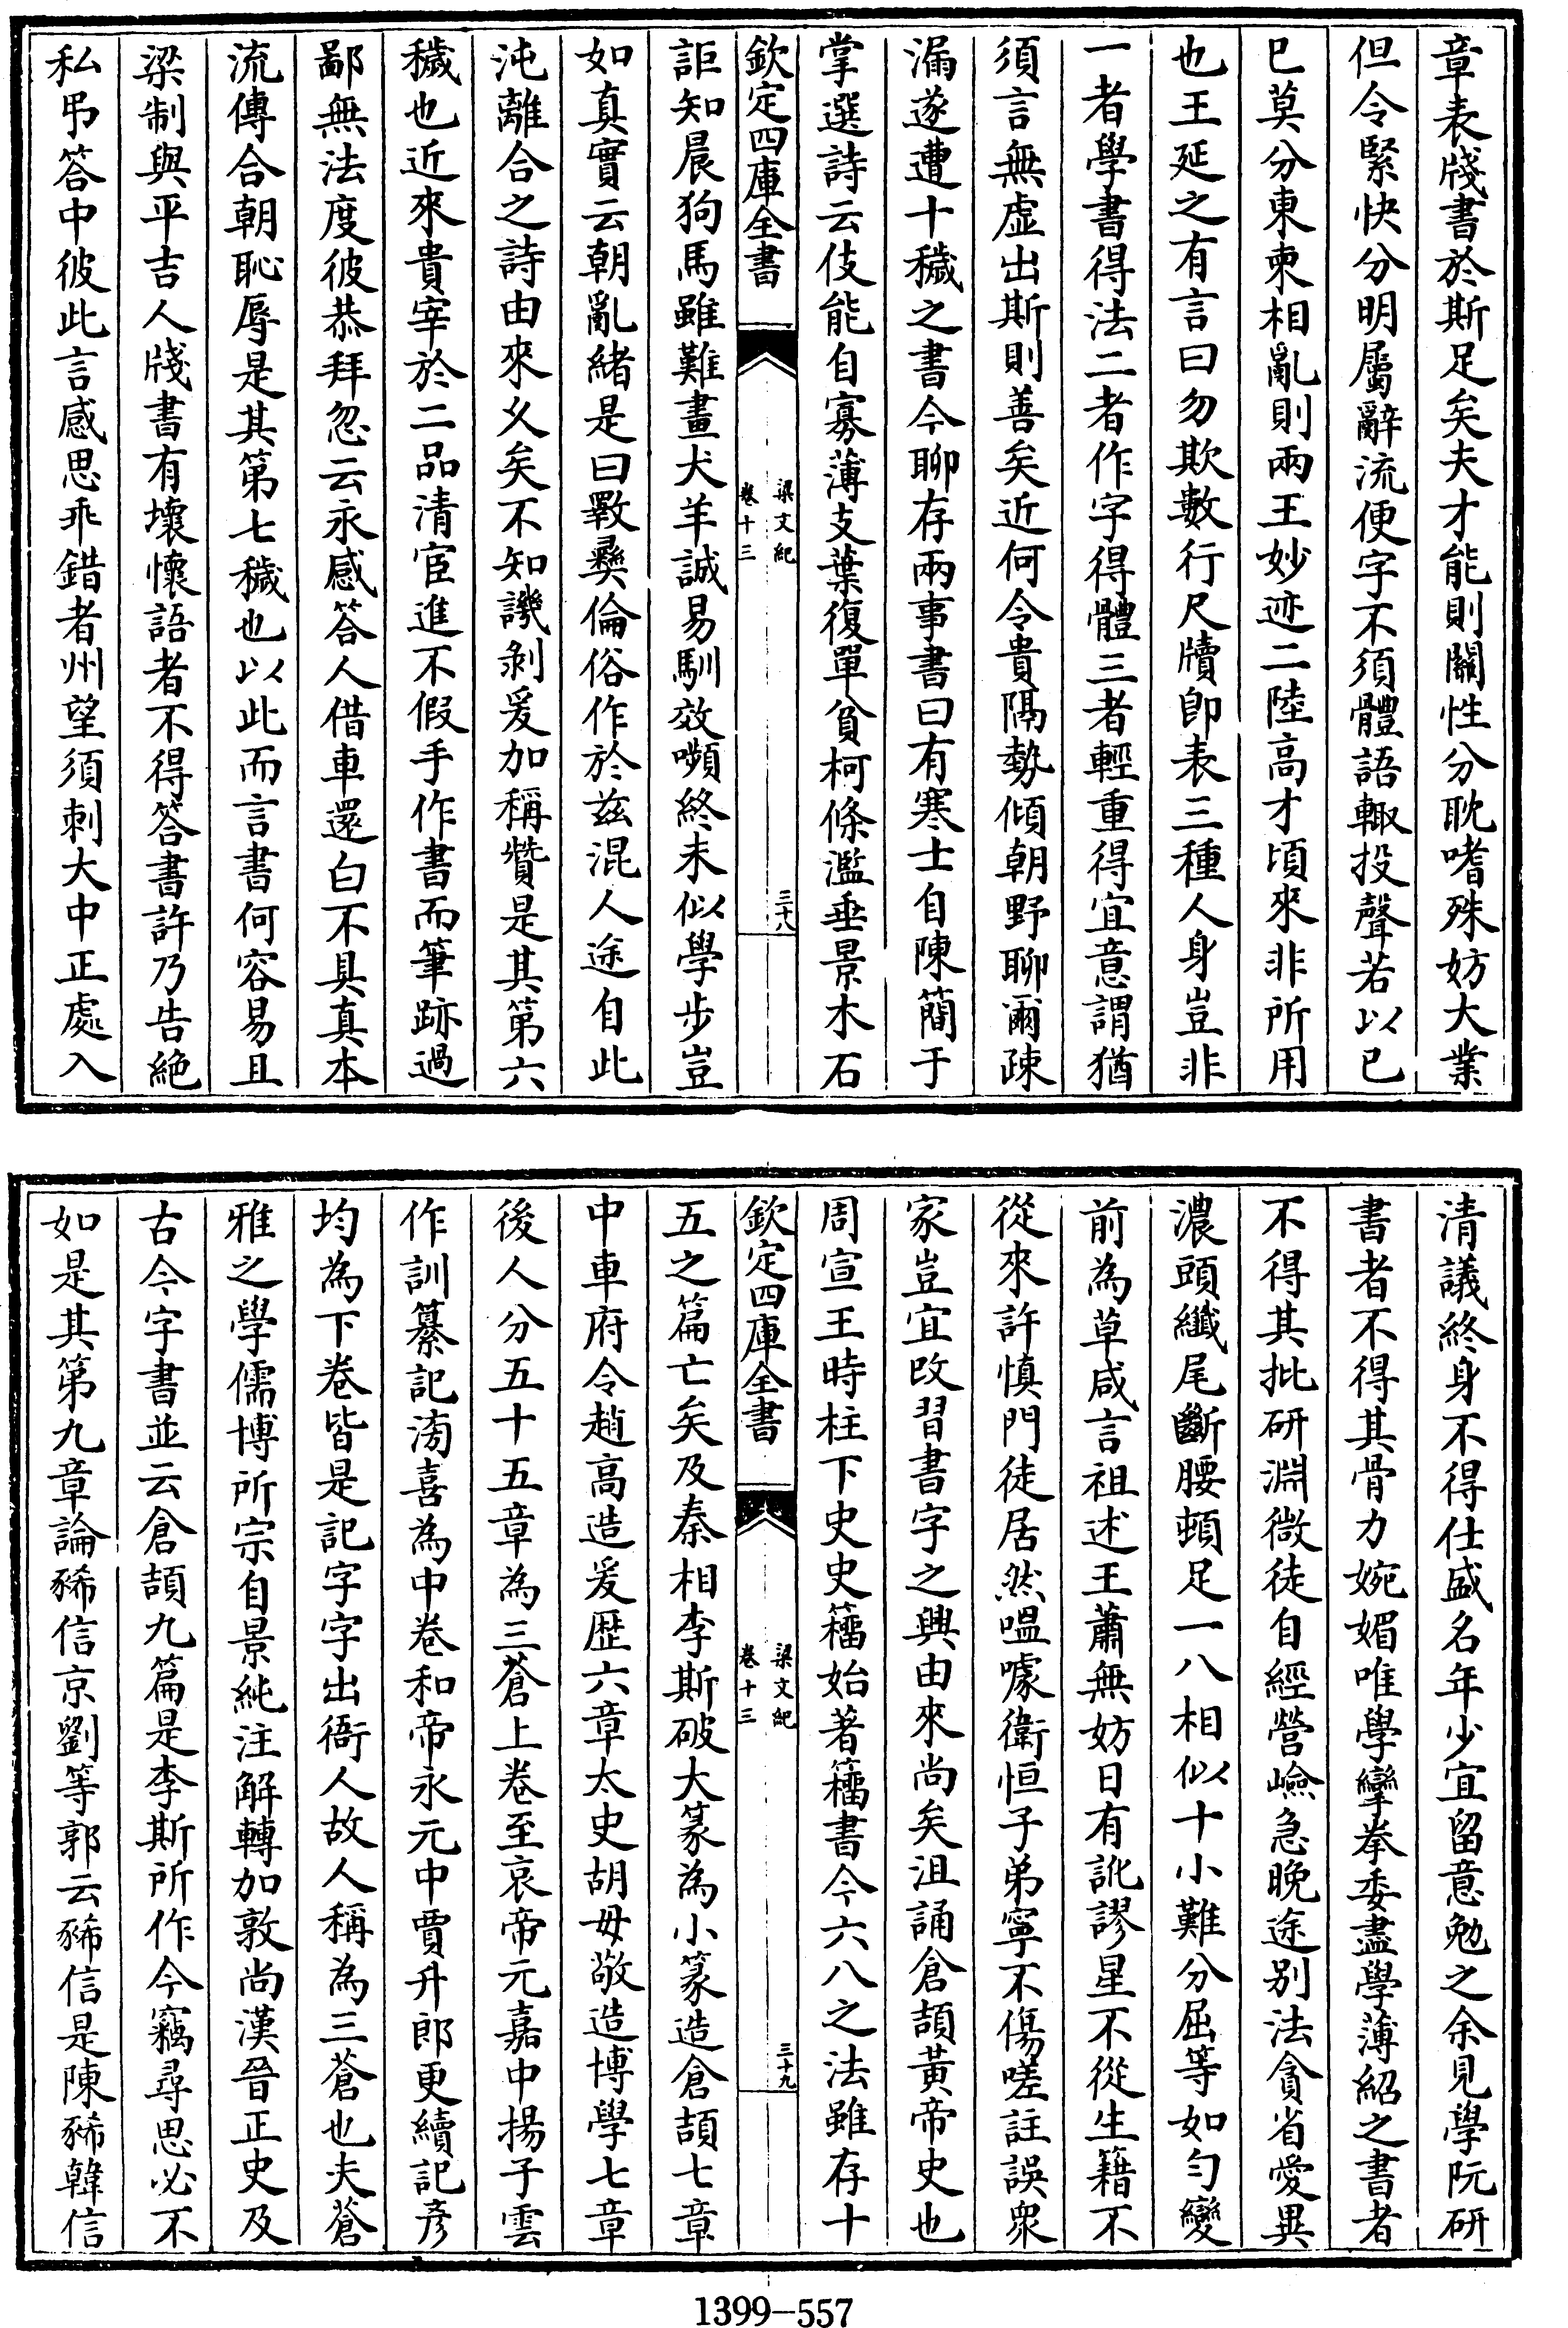 章表牋書於斯足矣夫才能則關性分耽嗜殊妨大業
但令緊快分明屬辭流便字不須體語輙投聲若以已
已莫分東柬相亂則兩王妙迹二陸高才頃來非所用
也王延之有言曰勿欺數行尺牘即表三種人身豈非
一者學書得法二者作字得體三者輕重得宜意謂猶
須言無虛出斯則善矣近何令貴隔勢傾朝野聊爾疎
漏遂遭十穢之書今聊存兩事書曰有寒士自陳簡于
掌選詩云伎能自寡薄支葉復單貧柯條濫垂景木石
欽定四庫全書
梁文紀
卷十三
三十八
詎知晨狗馬雖難畫犬羊誠易馴效嚬終未似學步豈
如真實云朝亂緒是曰斁彝倫俗作於兹混人途自此
沌離合之詩由來久矣不知譏剝爰加稱贊是其第六
穢也近來貴宰於二品清宦進不假手作書而筆跡過
鄙無法度彼恭拜忽云永感答人借車還白不具真本
流傳合朝恥辱是其第七穢也以此而言書何容易且
梁制與平吉人牋書有壞懷語者不得答書許乃告絶
私弔答中彼此言感思乖錯者州望須刺大中正處入
清議終身不得仕盛名年少宜留意勉之余見學阮研
書者不得其骨力婉媚唯學攣拳委盡學薄紹之書者
不得其批研淵微徒自經營嶮急晚途别法貪省愛異
濃頭纖尾斷腰頓足一八相似十小難分屈等如勻變
前為草咸言祖述王蕭無妨日有訛謬星不從生籍不
從來許慎門徒居然嗢噱衛恒子弟寧不傷嗟註誤衆
家豈宜改習書字之興由來尚矣沮誦倉頡黃帝史也
周宣王時柱下史史籒始著籒書今六八之法雖存十
欽定四庫全書
梁文紀
卷十三
三十九
五之篇亡矣及秦相李斯破大篆為小篆造倉頡七章
中車府令趙高造爰歴六章太史胡毋敬造博學七章
後人分五十五章為三蒼上卷至哀帝元嘉中揚子雲
作訓纂記滂喜為中卷和帝永元中賈升郎更續記彦
均為下卷皆是記字字出衙人故人稱為三蒼也夫蒼
雅之學儒博所宗自景純注解轉加敦尚漢晉正史及
古今字書並云倉頡九篇是李斯所作今竊尋思必不
如是其第九章論豨信京劉等郭云豨信是陳豨韓信
1399—557